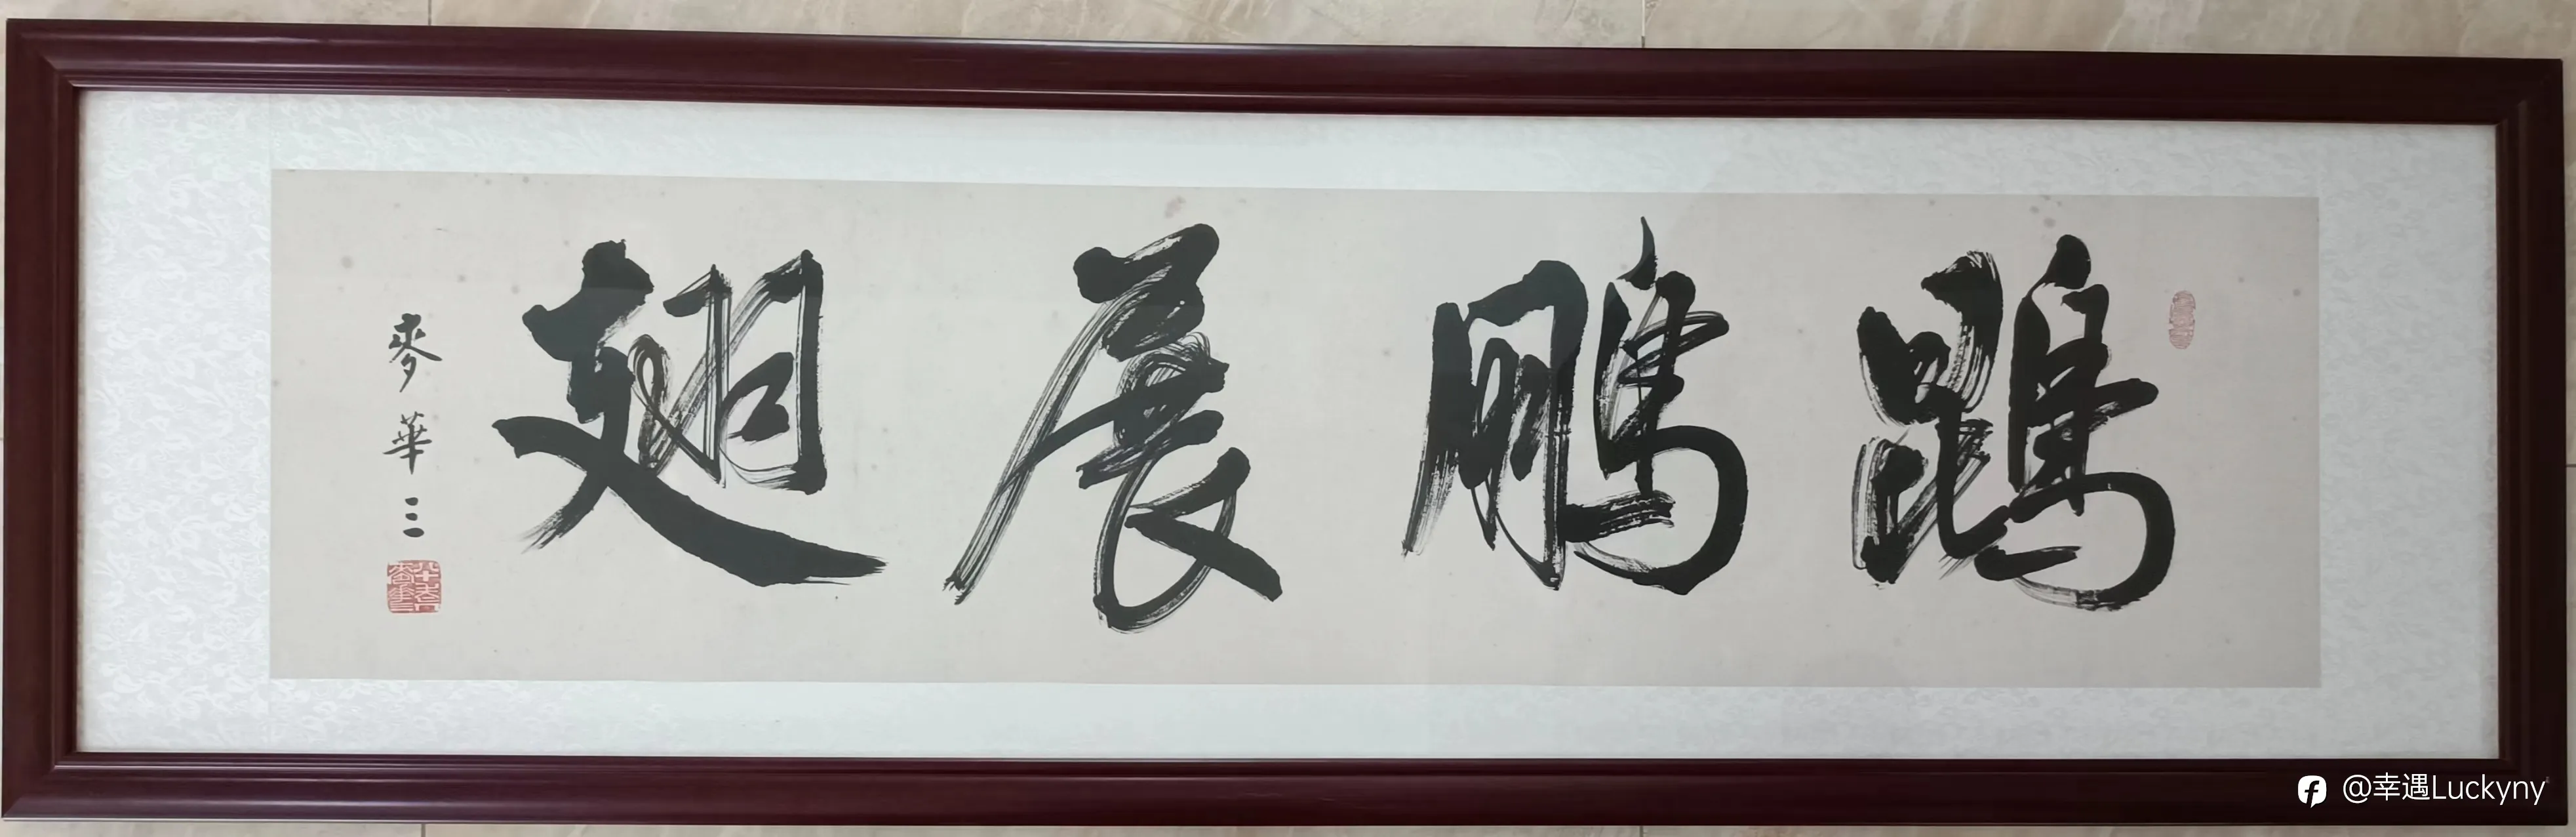 鵾鵬展翅
麥華三
@幸遇Luckyny